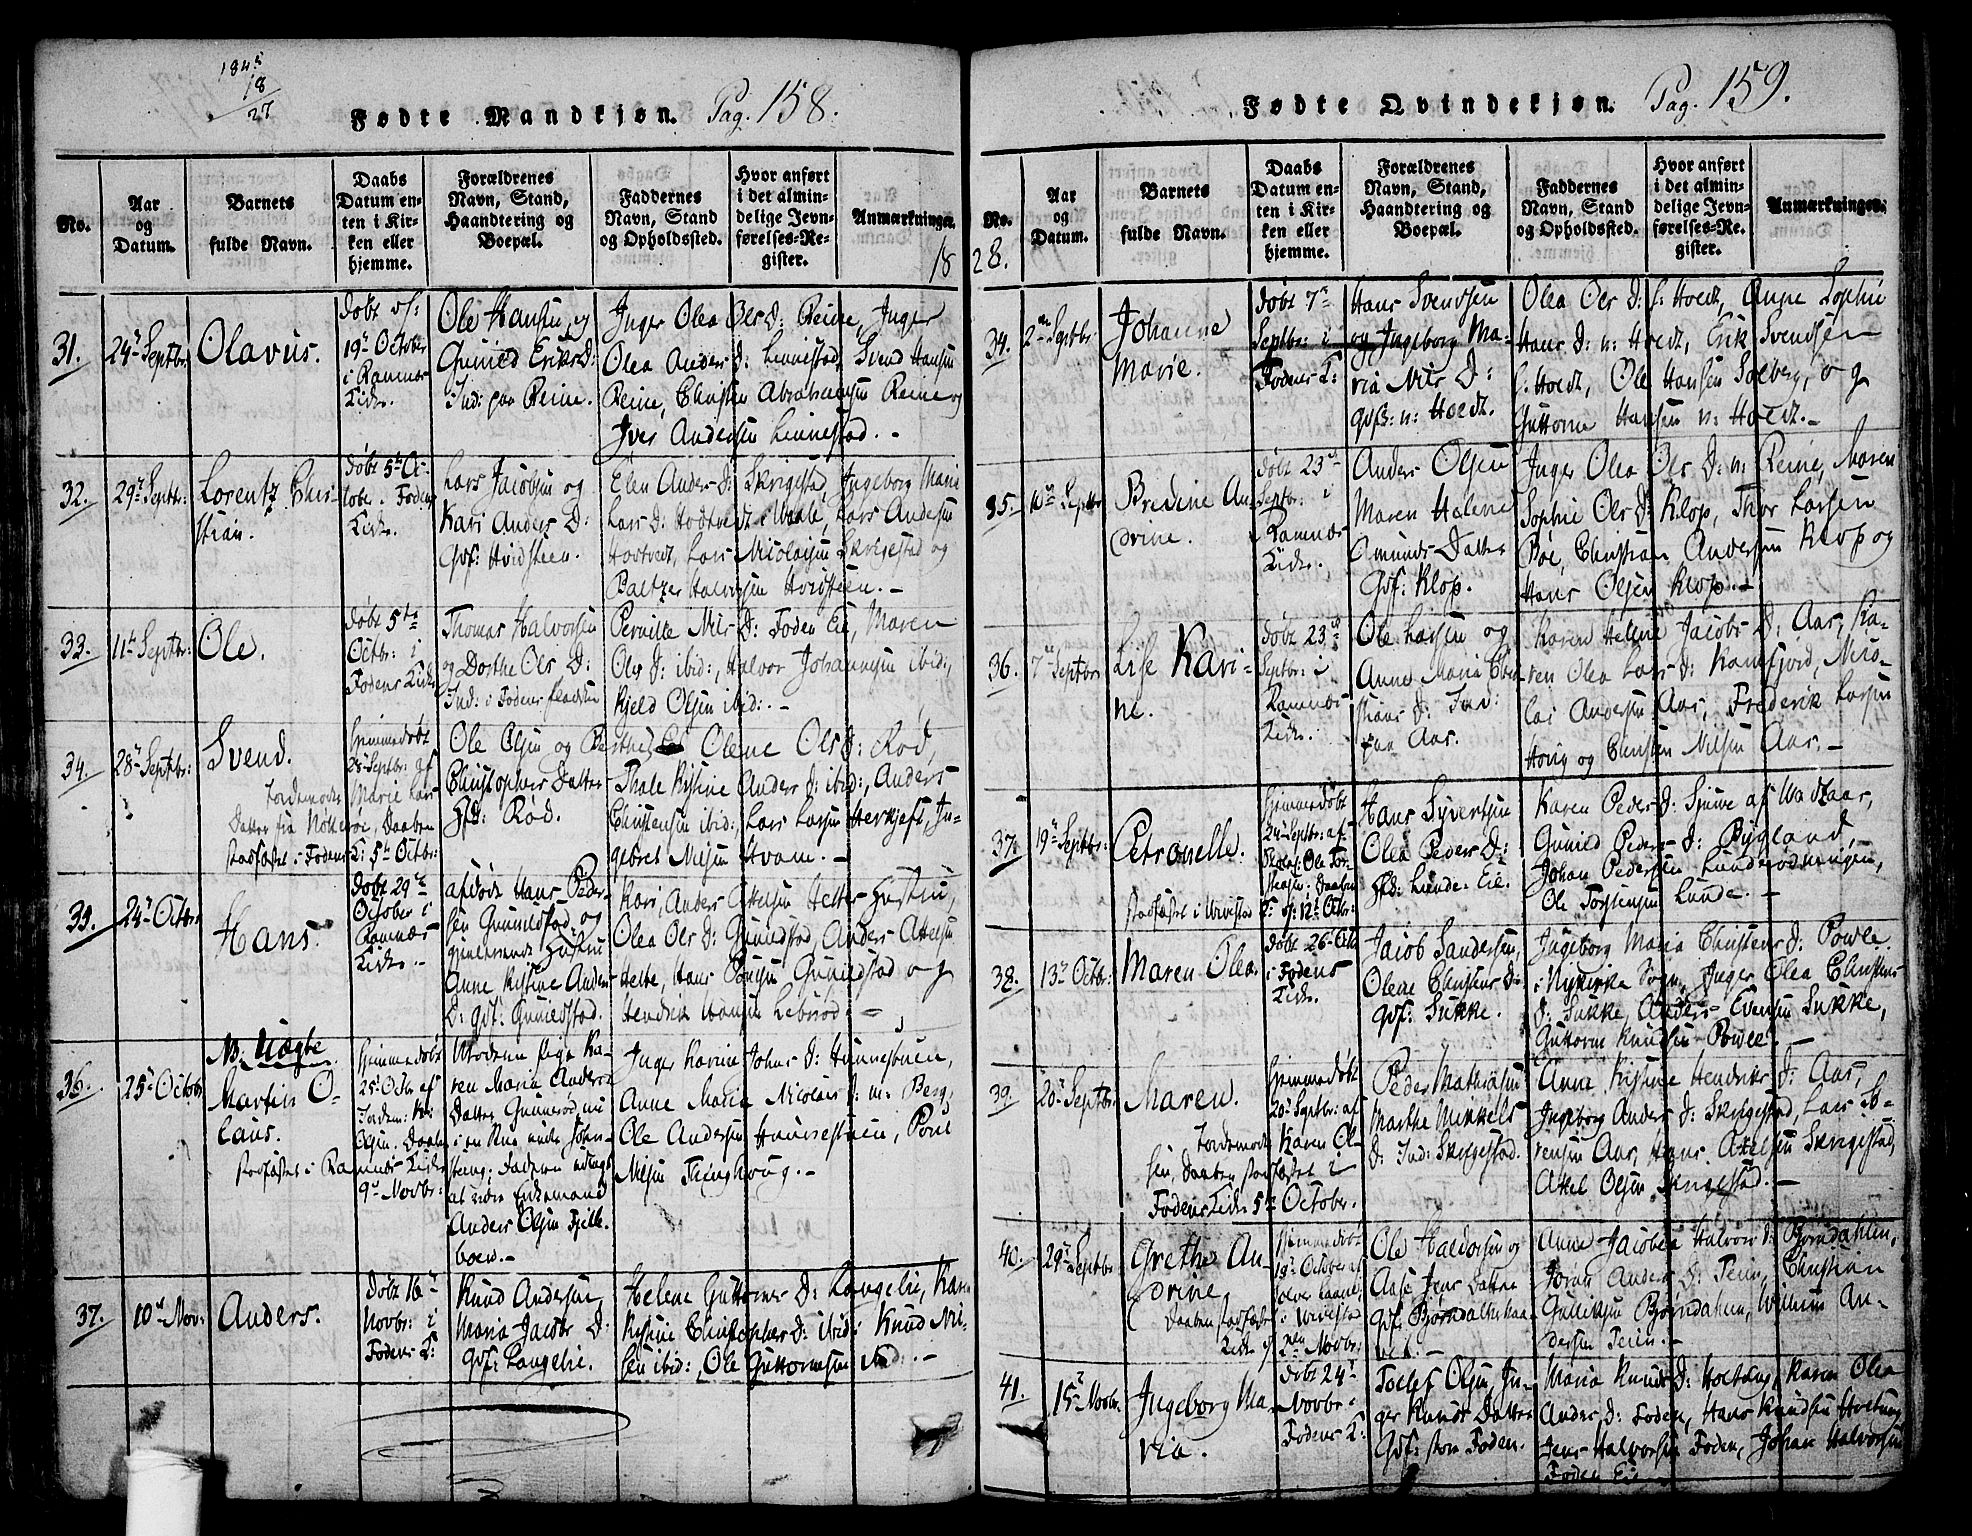 1845
18
27
Fødte Mandkjøn. Pag. 158.
No.
Aar og Datum.
Barnets fulde Navn.
Daabs Datum enten i Kirken eller hjemme.
Forældrenes Navn, Stand, Haandtering og Boepæl.
Faddernes Navn, Stand og Opholdssted.
Hvor anført i det almindelige Jevnførelses-Register.
Anmærkninger.
18
31.
24 Septbr:
Olavus.
døbt
19 October
i Ramnæs
Kirke.
Ole Hansen og
Gunild Eriks D:
Ind: paa Reine.
Inger Olea Ols D: Reine, Inger
Olea Anders D: Linnestad, Svend Hansen
Reine, Christen Abrahamsen Reine og
Iver Andersen Linnestad. -
32.
29 Septbr:
Lorentz Chri-
stian.
døbt 5te Oc-
tobr i Fodens
Kirke.
Lars Jacobsen og
Kari Anders D:
Gdf: Hvidsteen.
Elen Anders D: Skrigestad, Ingeborg Marie
Lars D: Hodtvedt i Vaale, Lars Andersen
Hodtvedt, Lars Nicolaisen Skrigestad og
Baltzer Halvorsen Hvidsteen. -
33.
11te Septbr:
Ole.
døbt 5te
Octbr: i
Fodens Kirke
Thomas Halvorsen
og Dorthe Ols D:
Ind: i Fodens
Pernille Nils D: Foden Eie, Maren
Ols D: ibid:, Halvor Johannesen ibid:,
Kjeld Olsen ibid:. -
34.
28 Septbr:
Svend.
Hjemmedøbt
28 Septbr: af
Jordemoder Marie Lars
Datter fra Nøtterøe, Daaben
stadfæstet i Fodens K: 5te Octbr:
Ole Olsen og Berthe
Christophers Datter
Rød.
Olene Ols D: Rød,
Thale Kistine Anders D: ibid:, Anders
Christensen ibid:, Lars Larsen Herkjest, In-
gebret Nilsen Hvam. -
35.
24 Octbr
Hans.
døbt 29te
October i
Ramnæs
Kirke. -
afdøde Hans Peder-
sen Gunildstad og
gjenlevende Hustru
Anne Kistine Anders
D: Gdf: Gunildstad.
Kari, Anders Attelsen Helte Hustru,
Olea Ols D: Gunildstad, Anders Attelsen
Helte, Hans Gunildstad og
Hendrik Hansen
36.
25 Octobr
NB. Uægte.
Martin O-
laus.
stadfæstet i Ra-
mnæs Kirke
9 Novbr:
Hjemmedøbt
25 Octbr af
Jordem:
Olsen. Daaben
Moderen Pige Ka-
ren Maria Anders
Datter Gunnerød nu
i en Stue under
Faderen udlagt
at være Enkemand
Anders Olsen Fjelle-
boen. -
Inger Karine Johns D: Hunnestuen,
Anne Maria Nicolais D: n: Berg,
Ole Andersen Hunnestuen, Poul
Nilsen Tinghoug. -
37.
10 Nov:
Anders.
Døbt 16
Novbr: i
Fodens K:
Knud Andersen
Maria Jacobs D.
Gdf: Langelie.
Helene Guttorms D: Langelie, Karen
Kistine Christophers D: ibid: Knud Nil-
sen ibid:, Ole Guttormsen ibid:. -
Fødte Qvindekjøn. Pag. 159.
No.
Aar og Datum.
Barnets fulde Navn.
Daabs Datum enten i Kirken eller hjemme.
Forældrenes Navn, Stand, Haandtering og Boepæl.
Faddernes Navn, Stand og Opholdssted.
Hvor anført i det almindelige Jevnførelses-Register.
Anmærkninger.
28.
34.
2 Septbr
Johanne
Marie.
døbt 7
Septbr: i
Fodens K:
Hans Svendsen
og Ingeborg Ma-
ria Nils D:
Gdf: n: Hoedt.
Olea Ols D: S: Hoedt, Anne Sophie
Hans D: n: Hoedt, Erik Svendsen
S: Hoedt, Ole Hansen Solberg, og
Guttorm Hansen n: Hoedt. -
35.
10 Septbr
Bredine An-
drine.
døbt 23
Septbr: i
Ramnæs
Kirke.
Anders Olsen
Maren Helene
Amunds Datter
Gdf: Klop.
Inger Olea Ols D: n: Reine, Maren
Sophie Ols D: Klop, Thor Larsen
Bøe, Christian Andersen Klop og
Hans Olsen Klop. -
36.
7 Septbr
Lise Kari-
ne.
døbt 23
Septbr: i
Ramnæs
Kirke.
Ole Larsen og
Anne Maria Chri-
stians D: Ind:
paa Aar.
Karen Helene Jacobs D: Aar, Ka-
ren Olea Lars D: Ramfjord, Nico-
lai Andersen Aar, Frederik Larsen
Houg og Christen Nilsen Aar. -
37.
19 Septbr:
Petronelle.
stadfæstet i Vivestad
Hjemmedøbt
24 Septbr: af
Skolel: Ole Tor-
stensen. Daaben
K: d: 12te Octbr:
Hans Syvertsen
Olea Peders D:
Lunde Eie.
Karen Peders D: af
Gunild Peders D: Bygland,
Johan Pedersen Lunde
Ole Torstensen Lunde. -
38.
13 Octbr:
Maren Olea.
døbt 26 Oct
i Fodens
Kirke.
Jacob Sandersen,
Olene Christens D:
Gdf: Sukke.
Ingeborg Maria Christens D: Powle
i Nykirke Sogn, Inger Olea Christens
D: Sukke, Anders Evensen Sukke,
Guttorm Knudsen Powle. -
39.
20 Septbr:
Maren.
Hjemmedøbt
20 Septbr: af
Jordemoder Karen Ol-
sen, Daaben stadfæstet i
Fodens Kirke 5te October.
Peder Mathisen
Marthe Mikkels
D: Ind: Skrigestad.
Anne Kistine Hendriks D: Aar,
Ingeborg Anders D: Skrigestad, Lars So-
rensen Aar, Hans Axelsen Skrigestad,
Axel Olsen Skrigestad. -
40.
29 Septbr
Grethe An-
drine.
Daaben stadfæstet
Hjemmedøbt
19 October af
i Vivestad
Kirke Novbr:
Ole Halvorsen og
Aase Jens Datter
Gdf:
Anne Jacobea Halvors D: Bjørndahlen,
Joran Anders D: Teien, Christian
Gulliksen Bjørndahlen, Wilhelm An-
dersen Teien. -
41.
15 Novbr.
Ingeborg Ma-
ria.
døbt 24
Novbr: i
Fodens K:
Tollef Olsen, In-
ger Knuds Datter
Gdf: store Foden.
Maria Knuds D: Hoetvug, Karen Olea
Anders D: Foden, Hans Knudsen
Jens Halvorsen Foden, Johan Halvorsen
Foden Eie